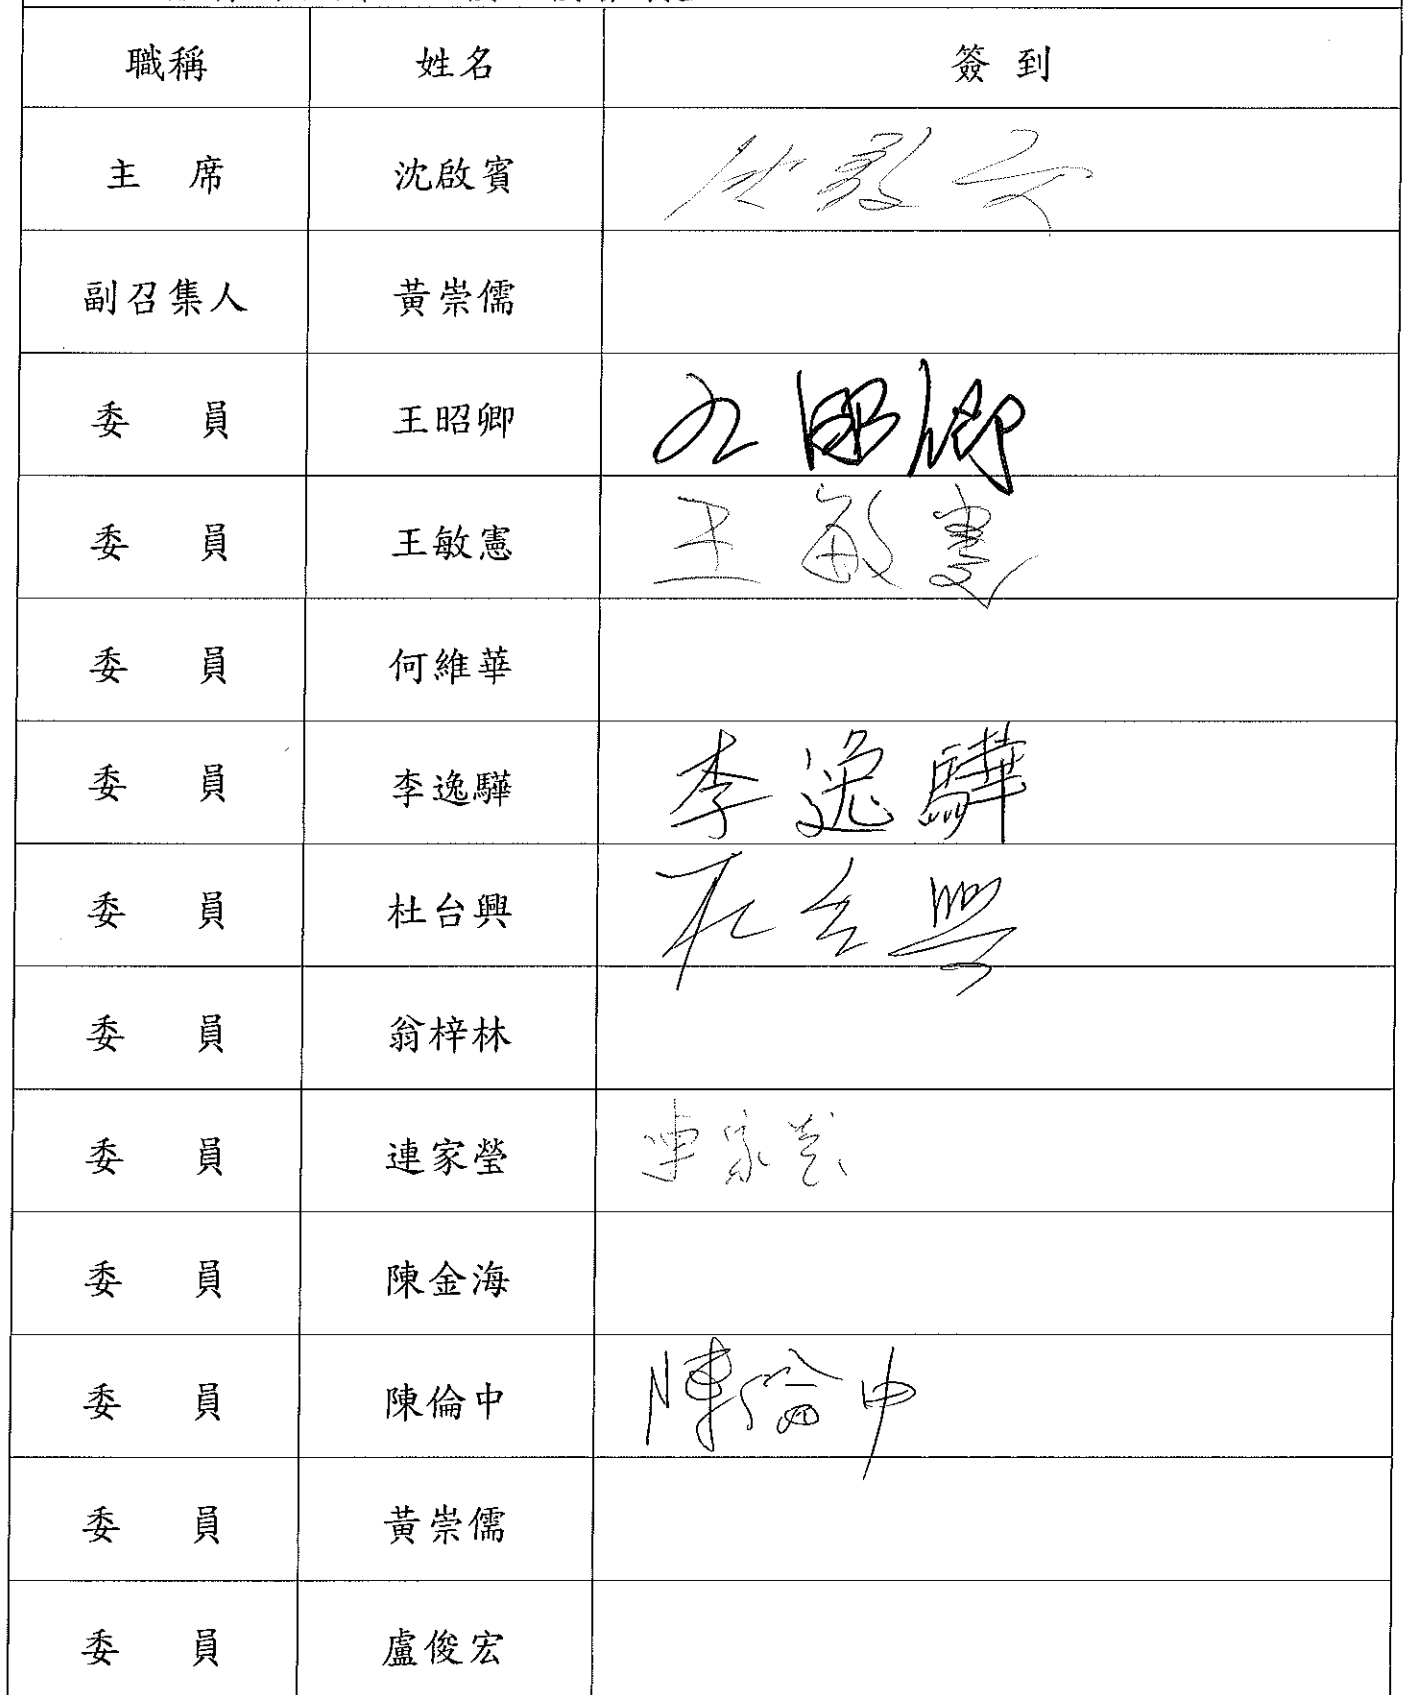 職稱 姓名 簽到
主席 沈啟賓
副召集人 黃崇儒
委員 王昭卿 王昭卿
委員 王敏憲 王敏憲
委員 何維華
委員 李逸驊 李逸驊
委員 杜台興 杜台興
委員 翁梓林
委員 連家瑩 連家瑩
委員 陳金海
委員 陳倫中 陳倫中
委員 黃崇儒
委員 盧俊宏